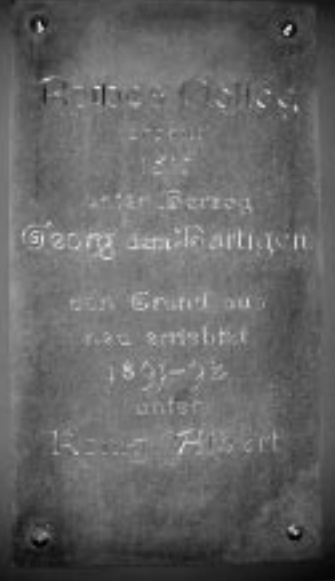 Rothes Colleg
erbaut
unter Herzog
Georg dem Bärtigen
von Grund aus
neu errichtet
1891-92
unter
König Albert